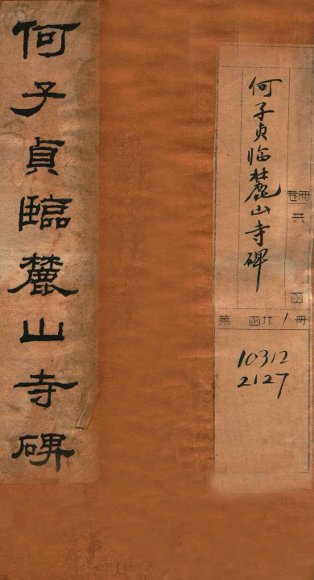 何子貞臨麓山寺碑
何子贞临麓山寺碑
卷册
共
函
第 函廿 1 册
10312
2127